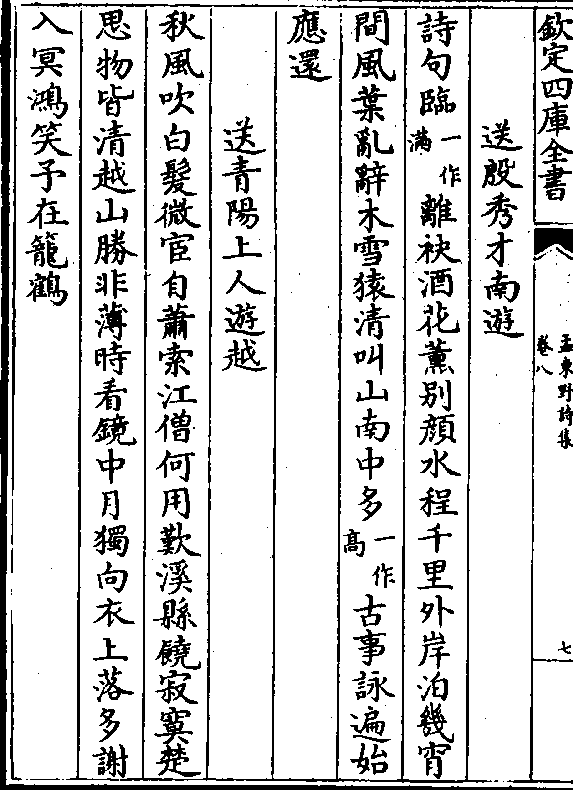 欽定四庫全書
孟東野詩集
卷八
七
送殷秀才南遊
詩句臨一作滿離袂酒花薰别顔水程千里外岸泊幾宵
間風葉亂辭木雪猿清叫山南中多一作髙古事詠遍始
應還
送青陽上人遊越
秋風吹白髮微宦自蕭索江僧何用歎溪縣饒寂寞楚
思物皆清越山勝非薄時看鏡中月獨向衣上落多謝
入冥鴻笑予在籠鶴